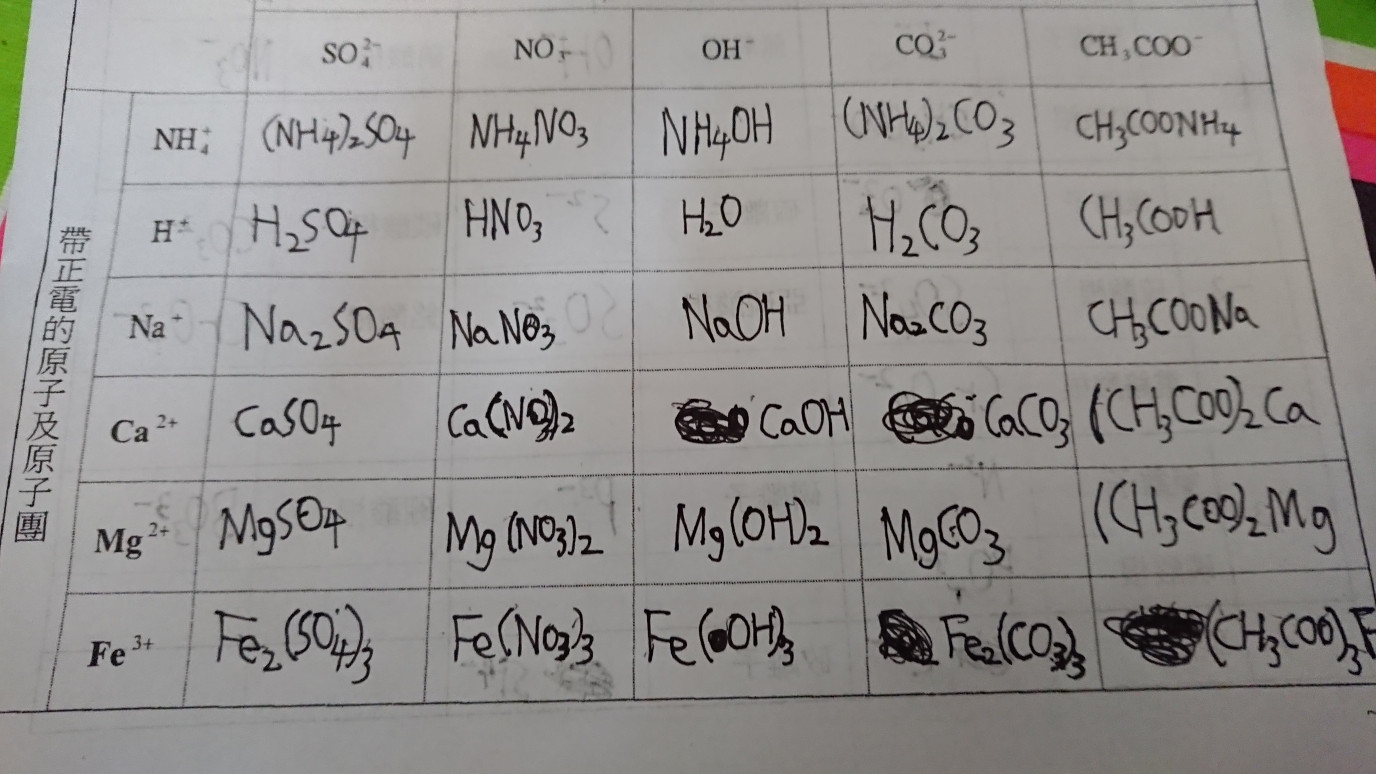 SO₄²⁻ NO₃⁻ OH⁻ CO₃²⁻ CH₃COO⁻
帶正電的原子及原子團
NH₄⁺ (NH₄)₂SO₄ NH₄NO₃ NH₄OH (NH₄)₂CO₃ CH₃COONH₄
H⁺ H₂SO₄ HNO₃ H₂O H₂CO₃ CH₃COOH
Na⁺ Na₂SO₄ NaNO₃ NaOH Na₂CO₃ CH₃COONa
Ca²⁺ CaSO₄ Ca(NO₃)₂ CaOH CaCO₃ (CH₃COO)₂Ca
Mg²⁺ MgSO₄ Mg(NO₃)₂ Mg(OH)₂ MgCO₃ (CH₃COO)₂Mg
Fe³⁺ Fe₂(SO₄)₃ Fe(NO₃)₃ Fe(OH)₃ Fe₂(CO₃)₃ (CH₃COO)₃F